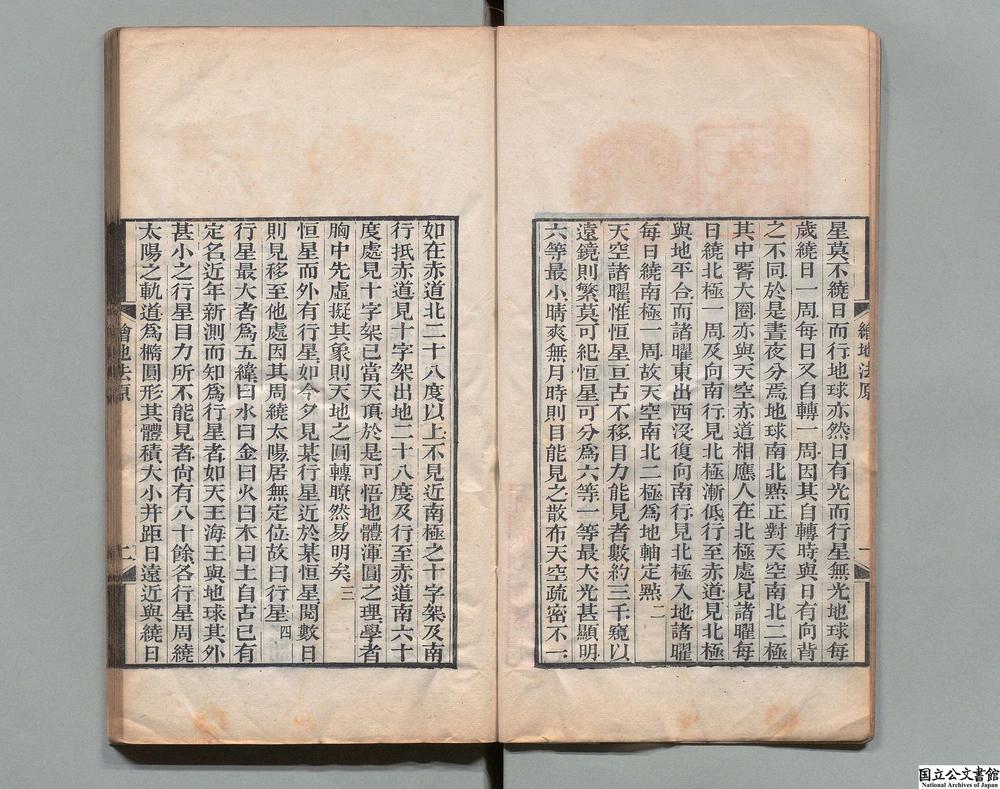 星莫不繞日而行地球亦然日有光而行星無光地球每
歲繞日一周每日又自轉一周因其自轉時與日有向背
之不同於是晝夜分焉地球南北點正對天空南北二極
其中腎大圈亦與天空赤道相應人在北極處見諸曜每
日繞北極一周及向南行見北極漸低行至赤道見北極
與地平合而諸曜東出西沒復向南行見北極入地諸曜
每日繞南極一周故天空南北二極爲地軸定點二
天空諸曜惟恒星亘古不移目力能見者數約三千窺以
遠鏡則繁莫可紀恒星可分爲六等一等最大光甚顯明
六等最小晴爽無月時則目能見之散布天空疏密不一
繪地法原
一
如在赤道北二十八度以上不見近南極之十字架及南
行抵赤道見十字架出地二十八度及行至赤道南六十
度處見十字架已當天頂於是可悟地體渾圓之理學者
胸中先虛擬其象則天地之圓轉瞭然易明矣三
恒星而外有行星如今夕見某行星近於某恒星閱數日
則見移至他處因其周繞太陽居無定位故曰行星四
行星最大者爲五緯曰水曰金曰火曰木曰土自古已有
定名近年新測而知爲行星者如天王海王與地球其外
甚小之行星目力所不能見者尙有八十餘各行星周繞
太陽之軌道爲橢圓形其體積大小并距日遠近與繞日
繪地法原
二
国立公文書館
National Archives of Japan